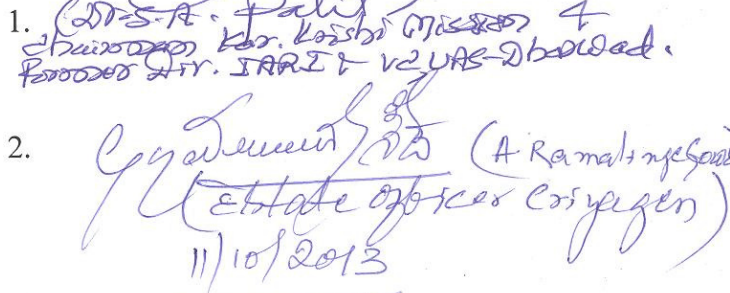 1. (Dr. S.A. Patil)
Chairman Kar. Krishi Mission &
Former Dir. IARI & VC, UAS-Dharwad.
2. (A Ramalingegowda
(Estate Officer
11/10/2013